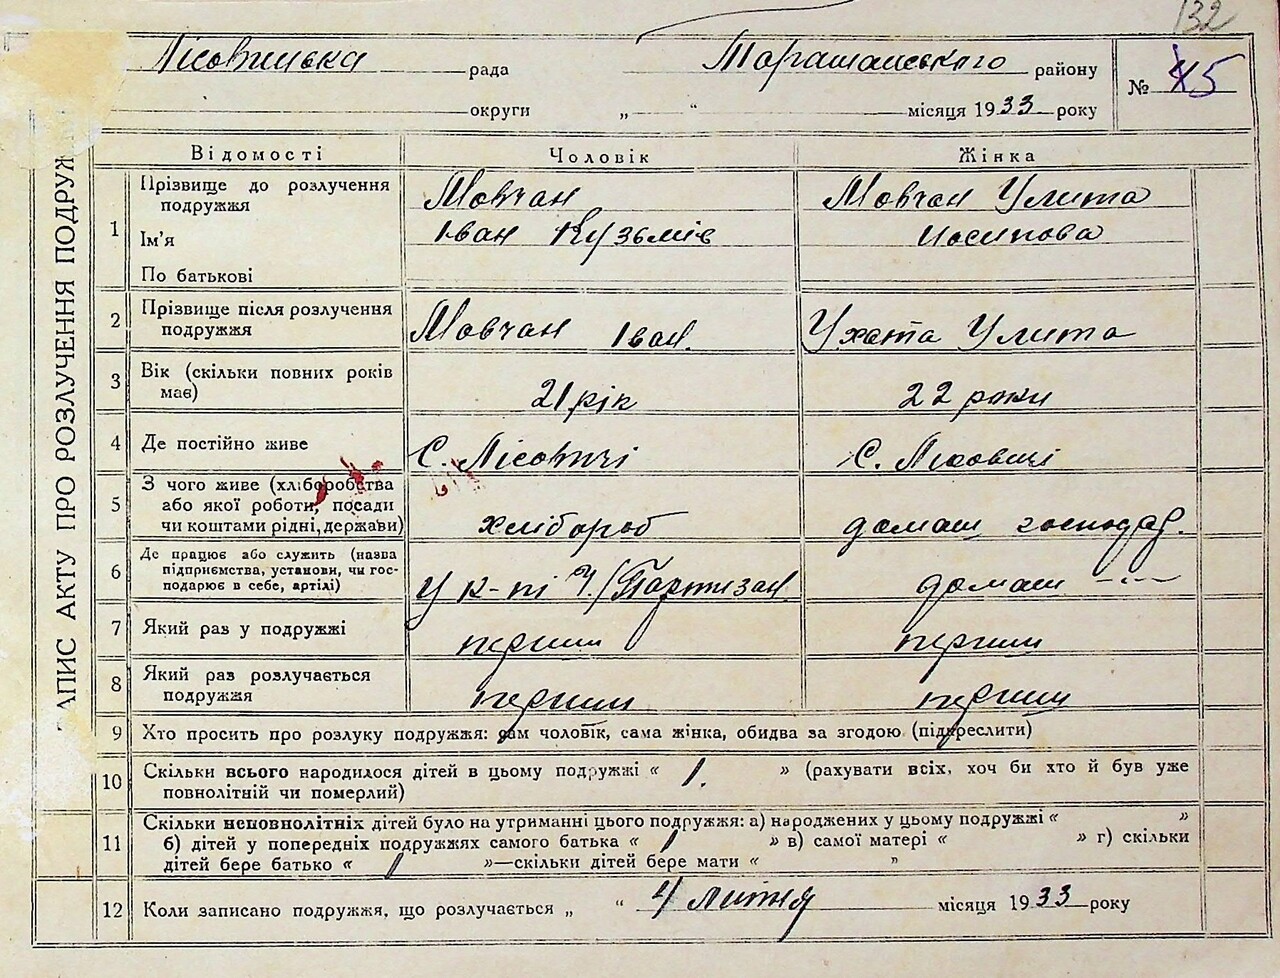 132
Лісовицька рада Таращанського району № 45
округи „ “ місяця 1933 року
АПИС АКТУ ПРО РОЗЛУЧЕННЯ ПОДРУЖ
Відомості Чоловік Жінка
1 Прізвище до розлучення подружжя Мовчан Мовчан Улита
Ім'я Іван Кузьмів Иосипова
По батькові
2 Прізвище після розлучення подружжя Мовчан Іван. Ухата Улита
3 Вік (скільки повних років має) 21 рік 22 роки
4 Де постійно живе С. Лісовичі С. Лісовичі
5 З чого живе (хліборобства або якої роботи, посади чи коштами рідні, держави) хлібороб домаш господар.
6 Де працює або служить (назва підприємства, установи, чи господарює в себе, артілі) У к-пі Ч/Партизан домаш -"-
7 Який раз у подружжі перший перший
8 Який раз розлучається подружжя перший перший
9 Хто просить про розлуку подружжя: сам чоловік, сама жінка, обидва за згодою (підкреслити)
10 Скільки всього народилося дітей в цьому подружжі « 1. » (рахувати всіх, хоч би хто й був уже
повнолітній чи померлий)
11 Скільки неповнолітніх дітей було на утриманні цього подружжя: а) народжених у цьому подружжі « »
б) дітей у попередніх подружжях самого батька « 1 » в) самої матері « » г) скільки
дітей бере батько « / »—скільки дітей бере мати « »
12 Коли записано подружжя, що розлучається „ “ 4 липня місяця 1933 року